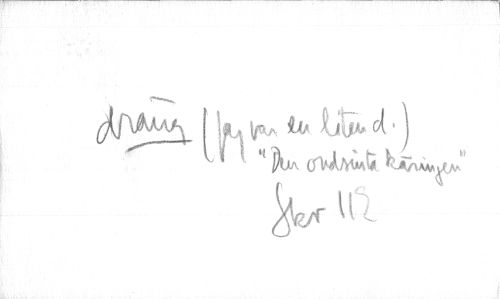 dräng (Jag var en liten d.)
"Den ondsinta käringen"
Skr 112